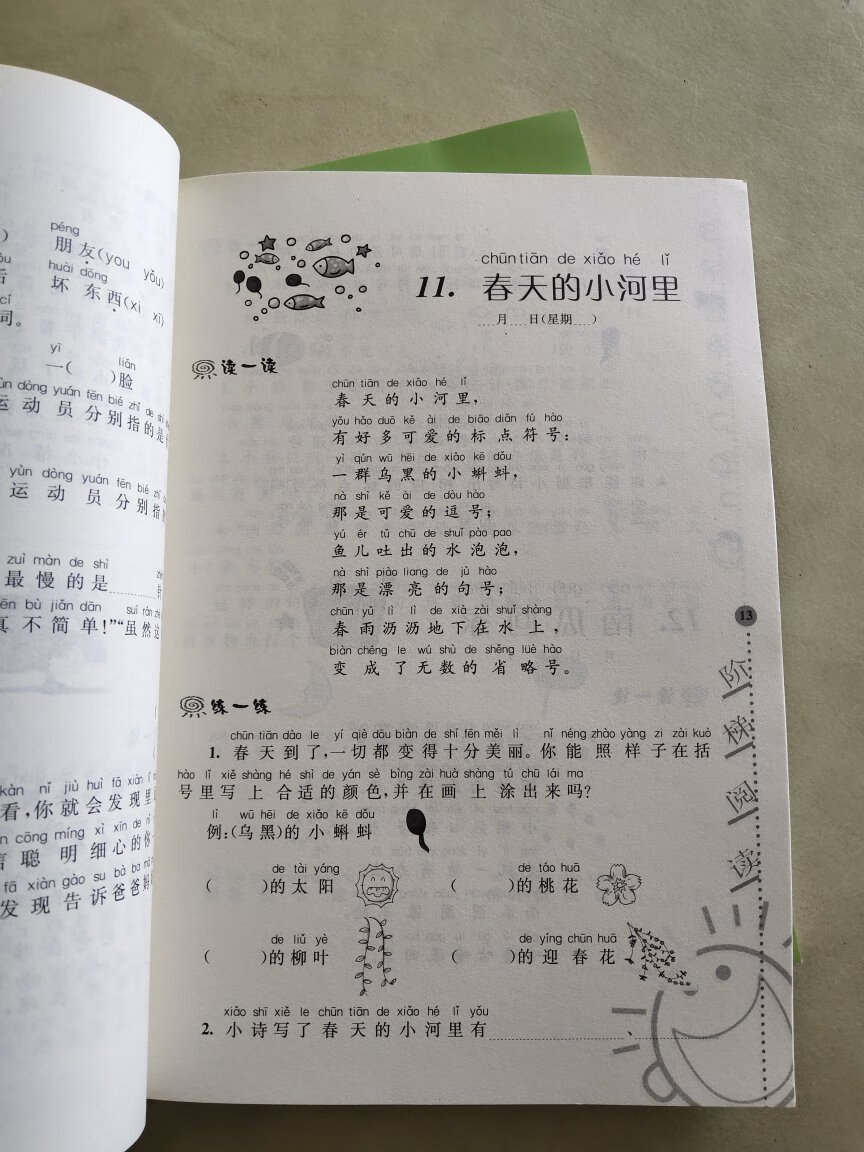 péng
朋友(you yǒu)
huài dōng
坏 东西(xi xī)
词。
yī liǎn
一( )脸
dòng yuán fēn bié zhǐ de shì
运 动 员 分 别 指 的 是
yùn dòng yuán fēn bié zhǐ
运 动 员 分 别 指
zuì màn de shì
最 慢 的 是
bù jiǎn dān suī rán zhè
真 不 简 单!”“虽然这
kàn nǐ jiù huì fā xiàn lǐ
看,你就会发现里
cōng míng xì xīn de nǐ
聪 明 细心的你
fā xiàn gào su bà ba mā
发 现 告诉爸爸妈
chūn tiān de xiǎo hé lǐ
11. 春天的小河里
月 日(星期 )
读一读
chūn tiān de xiǎo hé lǐ
春 天 的 小 河 里,
yǒu hǎo duō kě ài de biāo diǎn fú hào
有 好 多 可 爱 的 标 点 符 号:
yì qún wū hēi de xiǎo kē dǒu
一 群 乌 黑 的 小 蝌 蚪,
nà shì kě ài de dòu hào
那 是 可 爱 的 逗 号;
yú ér tǔ chū de shuǐ pào pao
鱼 儿 吐 出 的 水 泡 泡,
nà shì piào liang de jù hào
那 是 漂 亮 的 句 号;
chūn yǔ lì lì de xià zài shuǐ shàng
春 雨 沥 沥 地 下 在 水 上,
biàn chéng le wú shù de shěng lüè hào
变 成 了 无 数 的 省 略 号。
练一练
chūn tiān dào le yí qiè dōu biàn de shí fēn měi lì nǐ néng zhào yàng zi zài kuò
1. 春 天 到 了,一 切 都 变 得 十 分 美 丽。你 能 照 样 子 在 括
hào lǐ xiě shàng hé shì de yán sè bìng zài huà shàng tú chū lái ma
号 里 写 上 合 适 的 颜 色,并 在 画 上 涂 出 来 吗?
lì wū hēi de xiǎo kē dǒu
例:(乌 黑)的 小 蝌 蚪
de tài yáng de táo huā
( )的 太 阳 ( )的 桃 花
de liǔ yè de yíng chūn huā
( )的 柳 叶 ( )的 迎 春 花
xiǎo shī xiě le chūn tiān de xiǎo hé lǐ yǒu
2. 小 诗 写 了 春 天 的 小 河 里 有 、
13
阶梯阅读